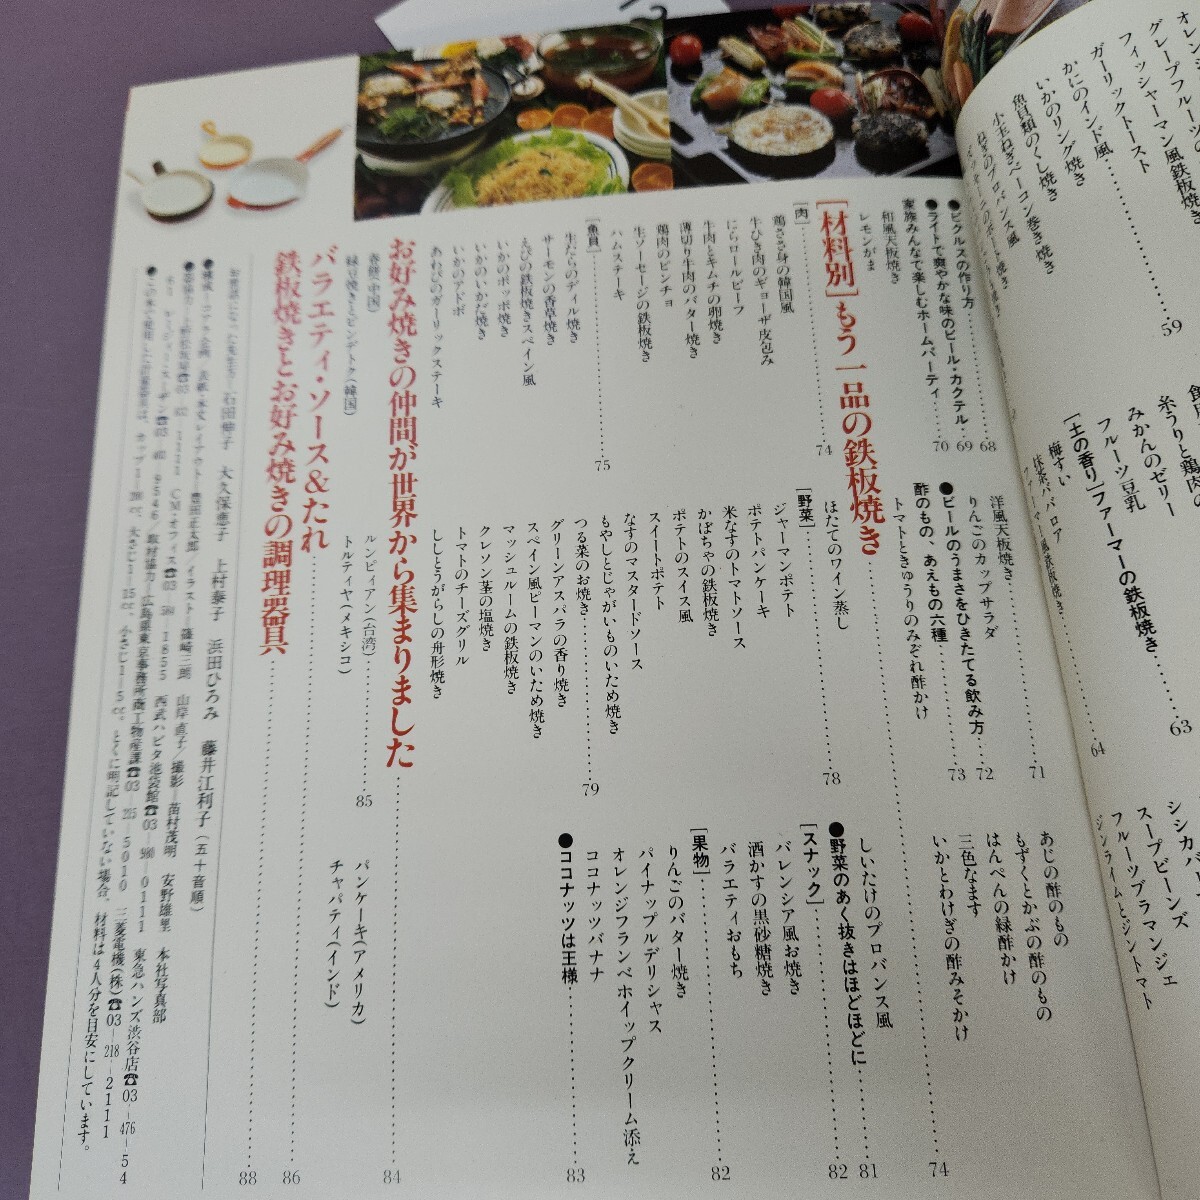 グレープフルーツの
フィッシャーマン風鉄板焼き……59
ガーリックトースト
かにのインド風
いかのリング焼き
魚貝類のくし焼き
小玉ねぎベーコン巻き焼き
ねぎのプロバンス風
糸うりと鶏肉
みかんのゼリー
フルーツ豆乳……63
[土の香り]ファーマーの鉄板焼き……64
梅すい
抹茶ババロア
スープビーンズ
フルーツブラマンジェ
ジンライムとジントマト
●ピクルスの作り方……68
●ライトで爽やかな味のビール・カクテル……69
家族みんなで楽しむホームパーティ……70
和風天板焼き
レモンがま
洋風天板焼き……71
りんごのカップサラダ
●ビールのうまさをひきたてる飲み方……72
酢のもの、あえもの六種……73
トマトときゅうりのみぞれ酢かけ
あじの酢のもの
もずくとかぶの酢のもの
はんぺんの緑酢かけ
三色なます
いかとわけぎの酢みそかけ
[材料別]もう一品の鉄板焼き……74
[肉]……74
鶏ささ身の韓国風
牛ひき肉のギョーザ皮包み
にらロールビーフ
牛肉とキムチの卵焼き
薄切り牛肉のバター焼き
鶏肉のピンチョ
生ソーセージの鉄板焼き
ハムステーキ
[魚貝]……75
生たらのディル焼き
サーモンの香草焼き
えびの鉄板焼きスペイン風
いかのポッポ焼き
いかのいかだ焼き
いかのアドボ
あわびのガーリックステーキ
ほたてのワイン蒸し
[野菜]……78
ジャーマンポテト
ポテトパンケーキ
米なすのトマトソース
かぼちゃの鉄板焼き
ポテトのスイス風
スイートポテト
なすのマスタードソース
もやしとじゃがいものいため焼き
つる菜のお焼き……79
グリーンアスパラの香り焼き
スペイン風ピーマンのいため焼き
マッシュルームの鉄板焼き
クレソン茎の塩焼き
トマトのチーズグリル
ししとうがらしの舟形焼き
しいたけのプロバンス風
●野菜のあく抜きはほどほどに……81
[スナック]……82
バレンシア風お焼き
酒かすの黒砂糖焼き
バラエティおもち
[果物]……82
りんごのバター焼き
パイナップルデリシャス
オレンジフランベホイップクリーム添え
ココナッツバナナ
●ココナッツは王様……83
お好み焼きの仲間が世界から集まりました……84
春餅(中国)
緑豆焼きとピンデトク(韓国)
ルンビィアン(台湾)……85
トルティヤ(メキシコ)
パンケーキ(アメリカ)
チャパティ(インド)
バラエティ・ソース&たれ……86
鉄板焼きとお好み焼きの調理器具……88
お世話になった先生方— 石田伸子 大久保恵子 上村泰子 浜田ひろみ 藤井江利子(五十音順)